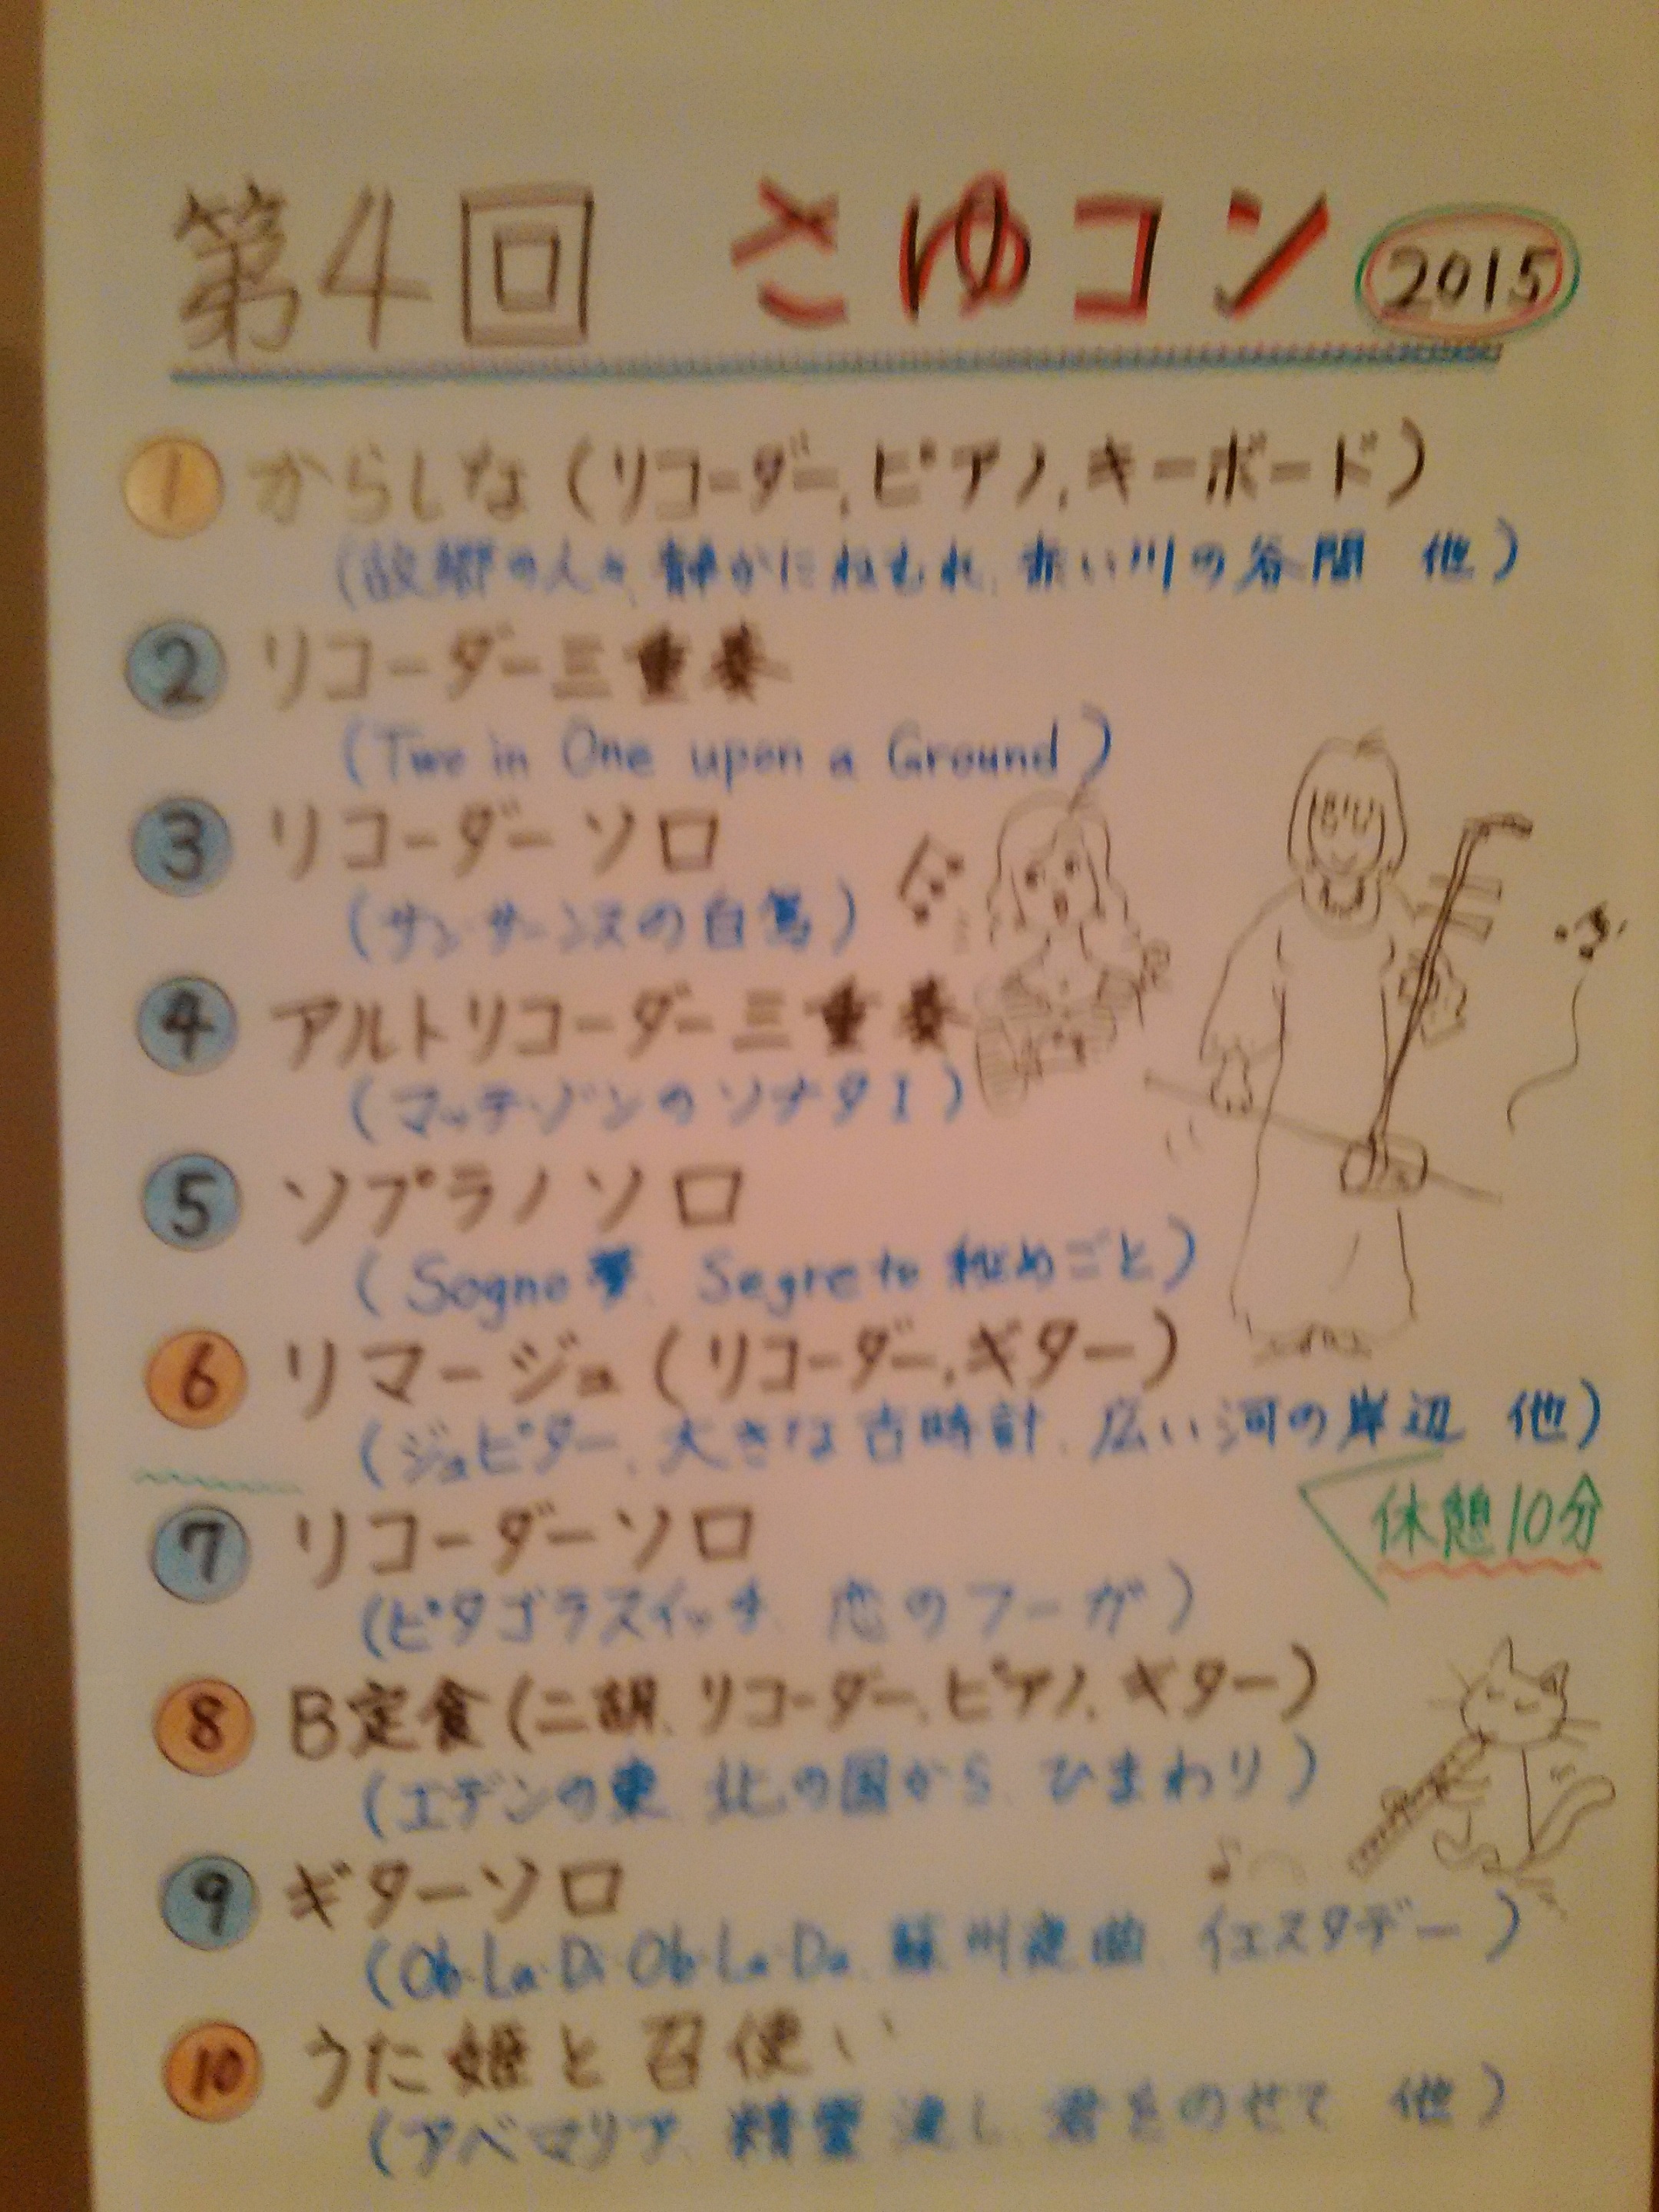 第4回 さゆコン 2015
① からしな(リコーダー, ピアノ, キーボード)
(故郷の人々, 静かにねむれ, 赤い川の谷間 他)
② リコーダー三重奏
(Two in One upon a Ground)
③ リコーダーソロ
(サン・サーンスの白鳥)
④ アルトリコーダー三重奏
(マッテゾンのソナタI)
⑤ ソプラノソロ
(Sogno 夢、Segreto 秘めごと)
⑥ リマージュ(リコーダー, ギター)
(ジュピター、大きな古時計、広い河の岸辺 他)
休憩10分
⑦ リコーダーソロ
(ピタゴラスイッチ、恋のフーガ)
⑧ B定食(二胡、リコーダー、ピアノ、ギター)
(エデンの東、北の国から、ひまわり)
⑨ ギターソロ
(Ob・La・Di・Ob・La・Da、蘇州夜曲、イエスタデー)
⑩ うた姫と召使い
(アベマリア、精霊流し、君をのせて 他)